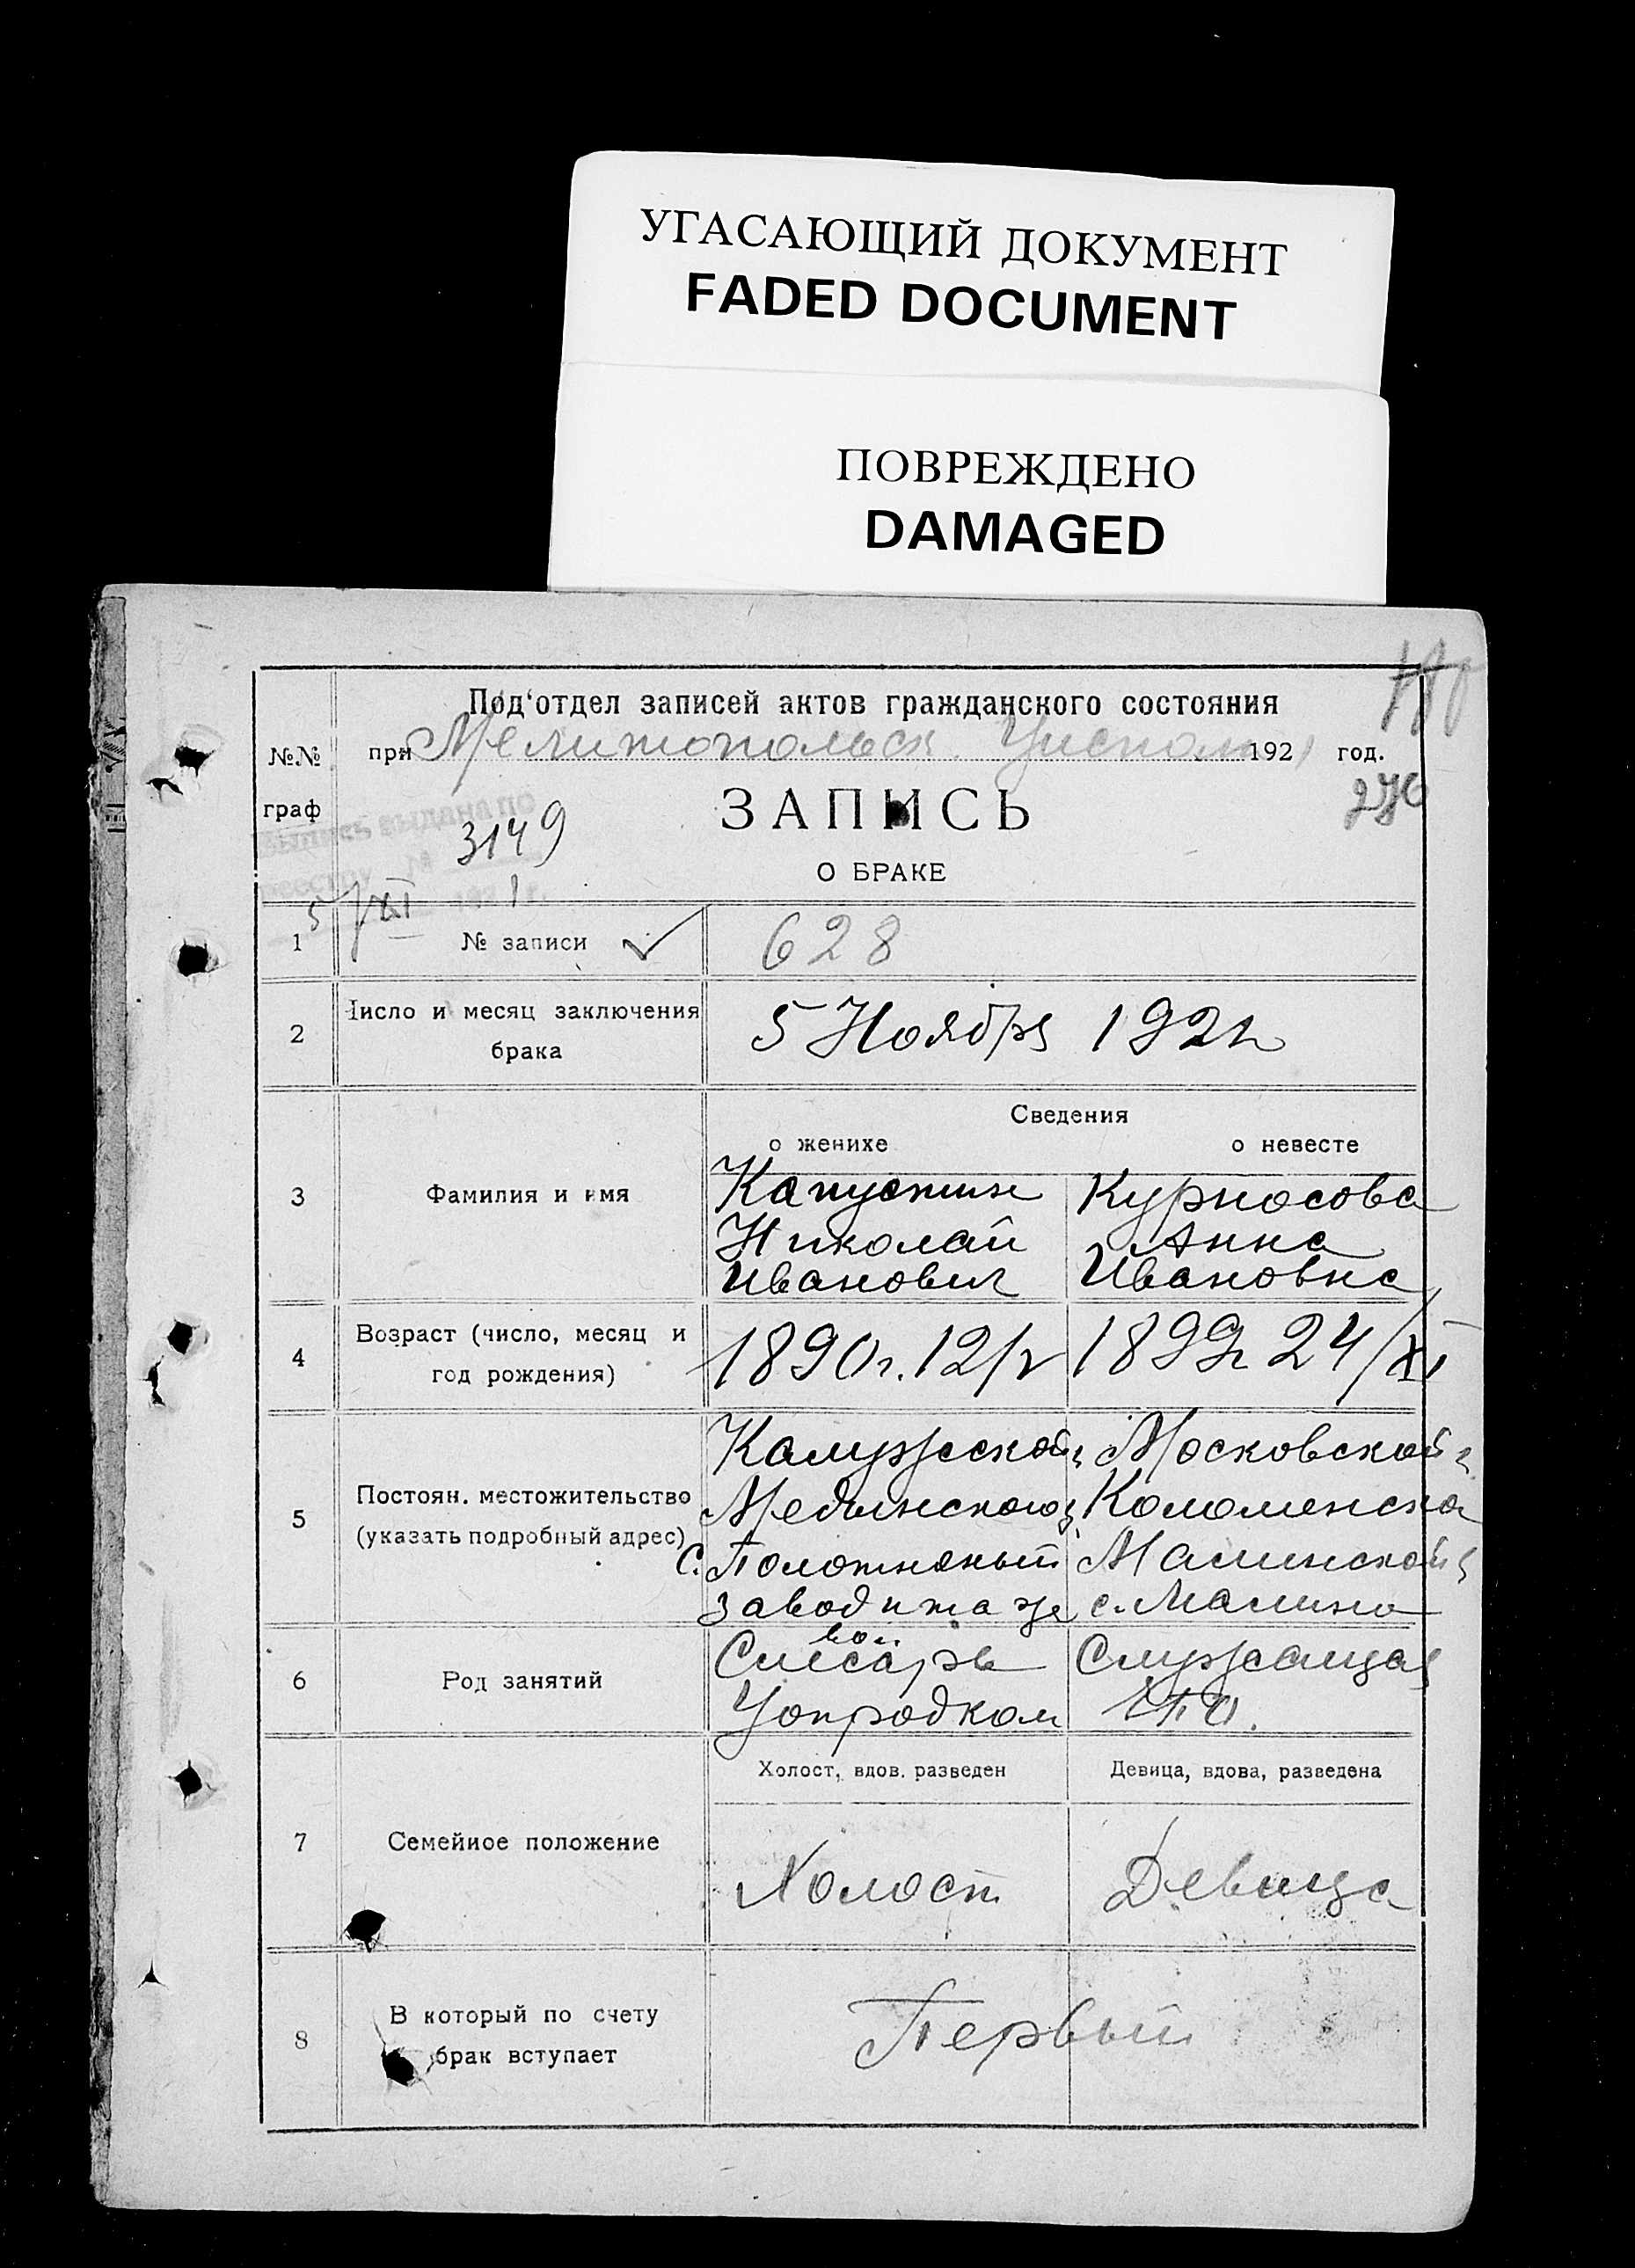 УГАСАЮЩИЙ ДОКУМЕНТ
FADED DOCUMENT
ПОВРЕЖДЕНО
DAMAGED
Под‘отдел записей актов гражданского состояния
№№ граф
при Мелитопольск. Уисполк 1921 год.
276
ЗАПИСЬ
О БРАКЕ
выпись выдана по
реестру № 3149
5/XI 1921 г.
1 № записи 628
2 Число и месяц заключения брака 5 Ноября 1921г
Сведения
о женихе о невесте
3 Фамилия и имя
Капустин Курносова
Николай Анна
Иванович Ивановна
4 Возраст (число, месяц и год рождения) 1890г. 12/V 1899г 24/XI
5 Постоян. местожительство (указать подробный адрес)
Калужской г Московской г
Медынского у Коломенско
С. Полотняный Малинской
завод и та же с. Малино
вол.
6 Род занятий
Слесарь Служащая
Уопродком
Холост, вдов. разведен Девица, вдова, разведена
7 Семейное положение Холост Девица
8 В который по счету брак вступает Первый